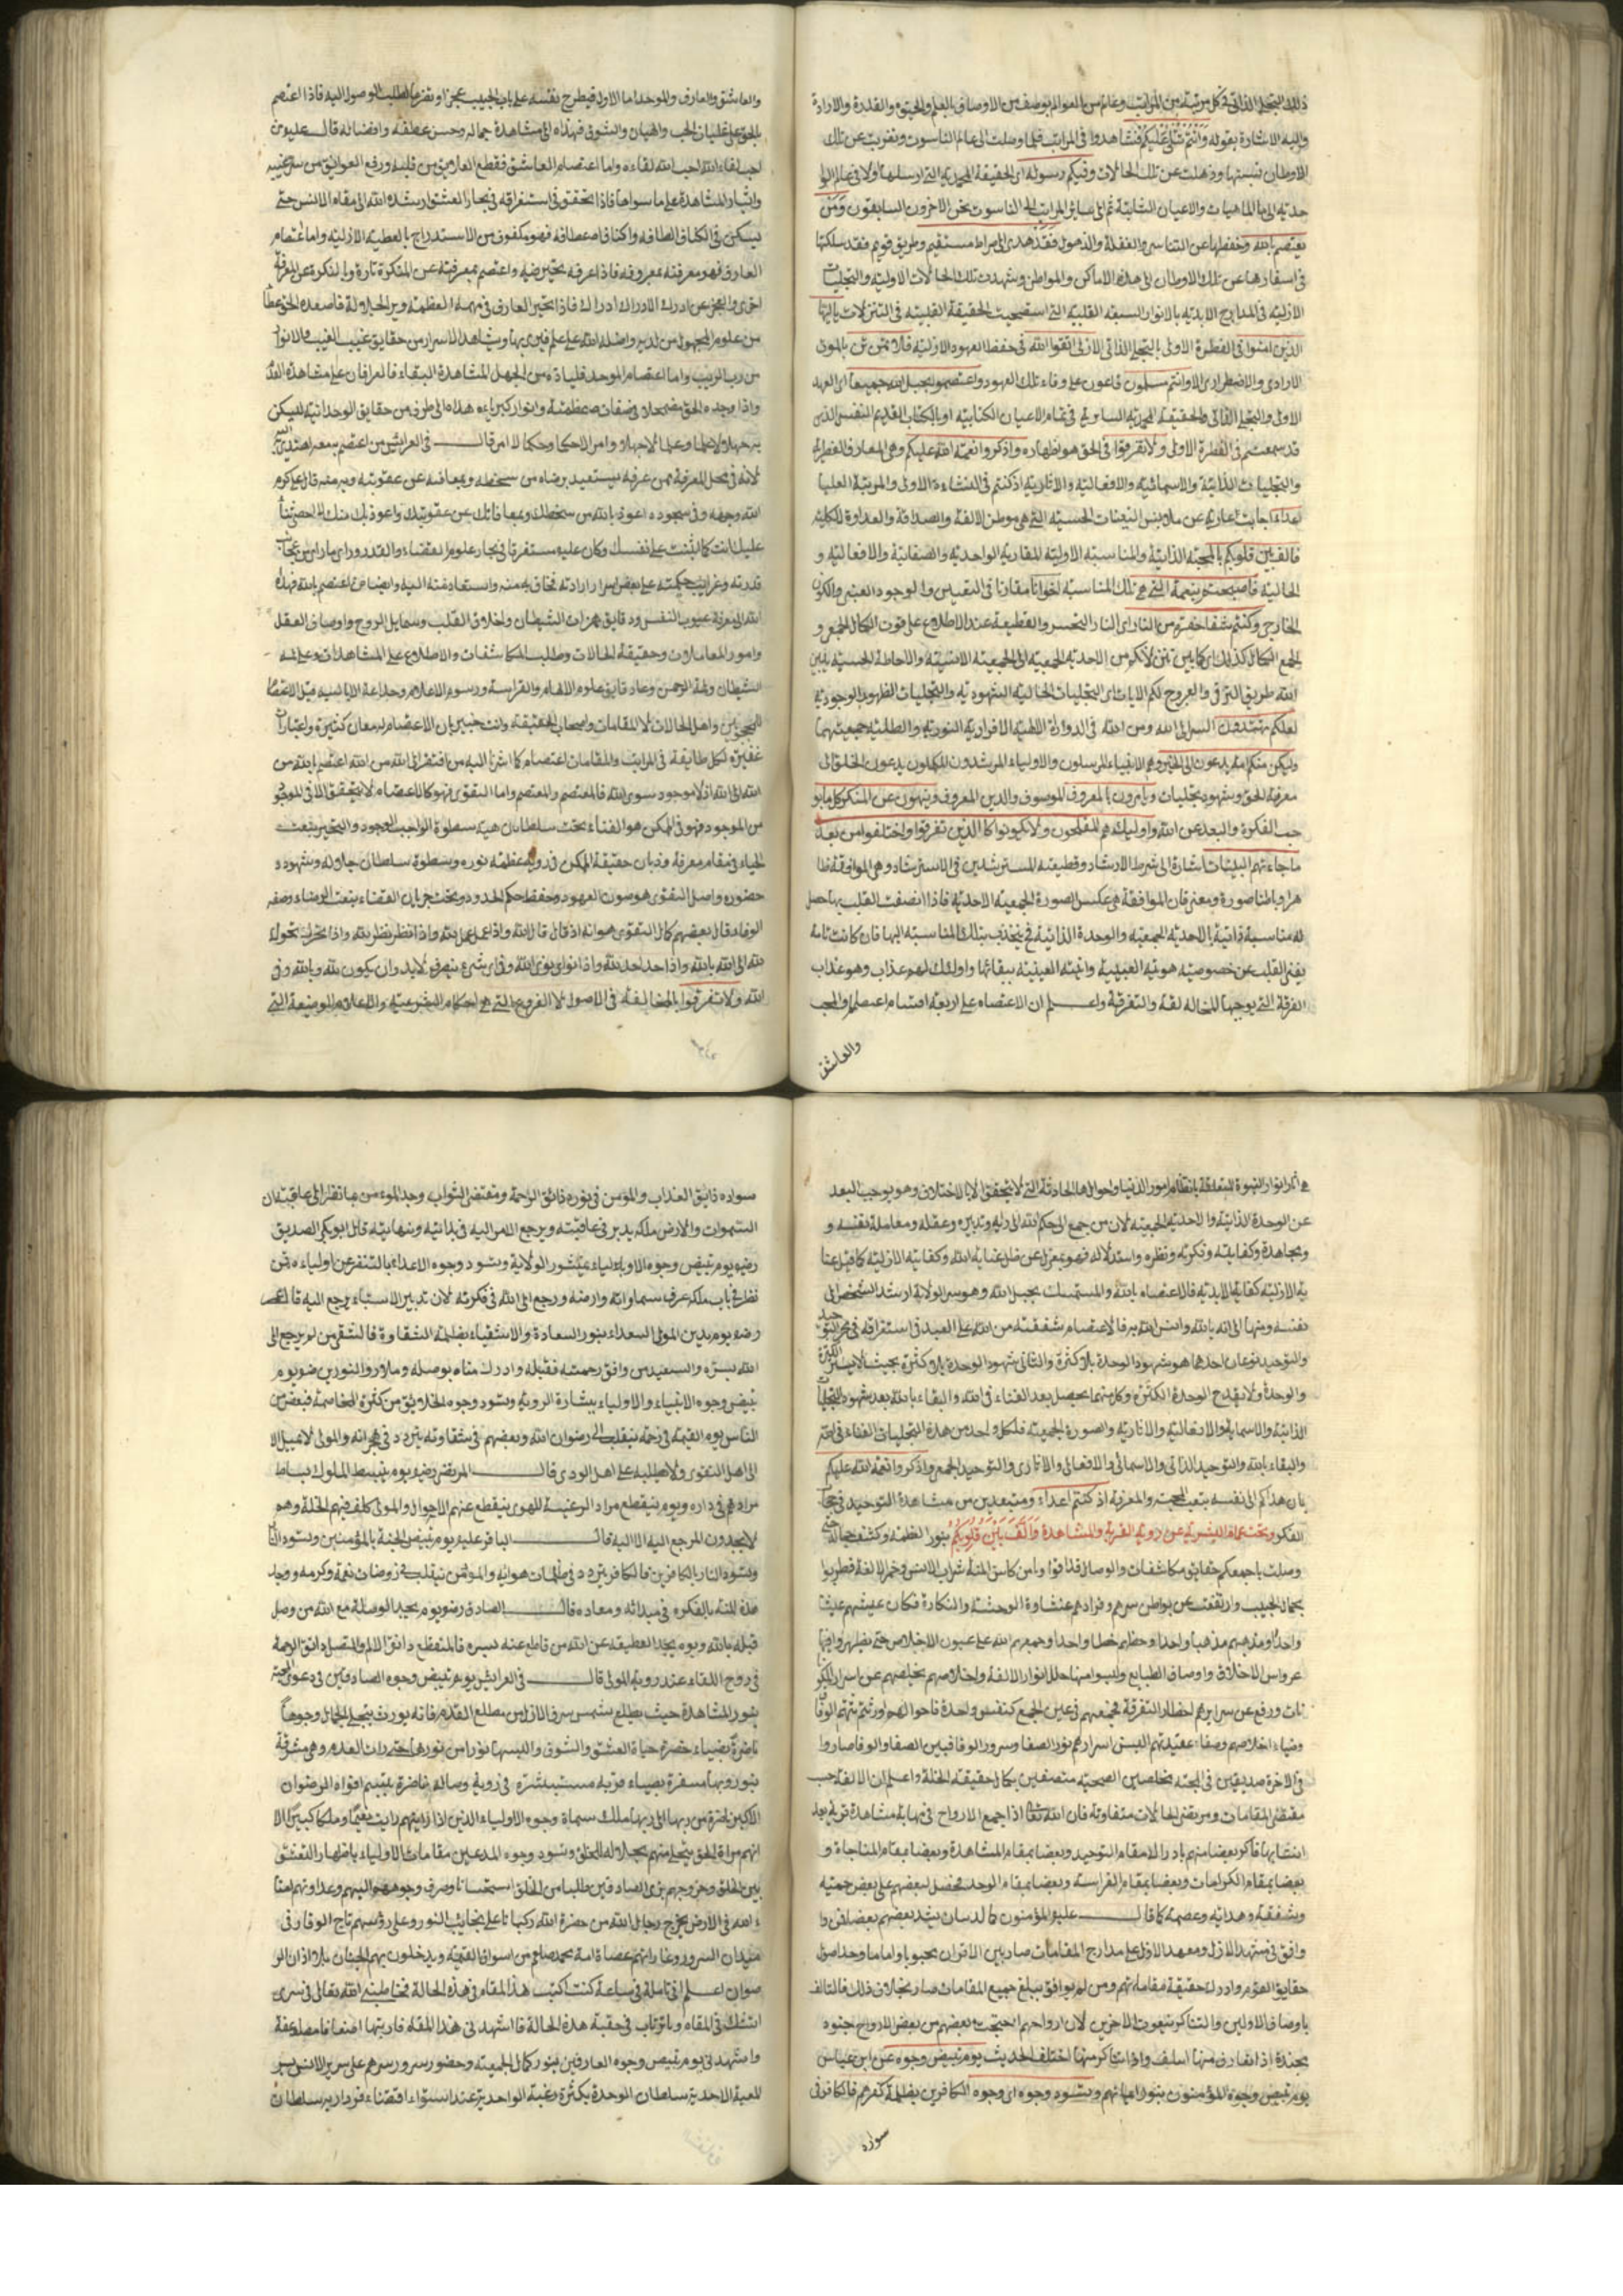 ذلك التجلي الذاتي في كل مرتبة من المراتب وعالم من العوالم بوصف من الاوصاف بالعلم والحيوة والقدرة والارادة
واليه الاشارة بقوله وَاَنْتُمْ تُتْلٰى عَلَيْكُمْ فتشاهدوا في المراتب فلما وصلت الى عالم الناسوت وتغربت عن تلك
الاوطان نسيتها وذهلت عن تلك الحالات وفيكم رسوله اى الحقيقة المحمدية التي ارسلها اولا في عالم الوا
حدية الى الماهيات والاعيان الثابتة ثم الى سائر المراتب الى الناسوت نحن الاخرون السابقون وَمَنْ
يعتصم بالله وحفظها عن التناسى والغفلة والذهول فقد هدى الى صراط مستقيم وطريق قويم فقد سلكتها
في اسفارها عن تلك الاوطان الى هذه الاماكن والمواطن وشهدت تلك الحالات الاولية والتجليات
الازلية في المدارج الابدية بالانوار القلبية التي استصحبت الحقيقة القلبية في التنزلات يا ايها
الذين امنوا في الفطرة الاولى بالتجلي الذاتي الازلى اتقوا الله في حفظ العهود الازلية فلا تموتن بالموت
الارادى والاضطرارى الا وانتم مسلمون على وفاء تلك العهود واعتصموا بحبل الله جميعا اى العهد
الاولى والتجلي الذاتي والحقيقة المحمدية السارية في تمام الاعيان الكتابية او بالكتاب القديم النفس الذى
قد سمعتم في الفطرة الاولى ولا تفرقوا في الحق هو بظهاره واذكروا نعمة الله عليكم وهي المعارف الفطرية
والتجليات الذاتية والاسمائية والافعالية والاثارية اذ كنتم في النشاءة الاولى والمرتبة العليا
اعداء اجانب عارية عن ملابس التعينات الحسية التي هي موطن الالفة والصداقة والعداوة الكلية
فالف بين قلوبكم بالمحبة الذاتية والمناسبة الاولية المقارية الواحدية والصفاتية والافعالية و
الحالية فاصبحتم بنعمة التي هي تلك المناسبة اخوانا مقارنا في التعيين والوجود العيني والكون
الخارجي وكنتم على شفا حفرة من النار اى النار التحسر والقطيعة عند الاطلاع على فوت الكمال الجمع و
الجمع الكمال كذلك اى كما بين تنزلاتكم من الاحدية الجمعية الى الجمعية الانسية والاحاطة الحسية يبين
الله طريق الترقي والعروج لكم الايات اى التجليات الحالية الشهودية والتجليات الظهور الوجودية
لعلكم تهتدون السير الى الله ومن الله في الدوارة الافرادية النورية والظلية جمعيتهما
وليكن منكم امة يدعون الى الخير وهم الانبياء المرسلون والاولياء المرشدون المكملون يدعون الخلق الى
معرفة الحق وشهود تجليات ويامرون بالمعروف الموسوف والدين المعروف وينهون عن المنكر كل ما يو
جب الفكرة والبعد عن الله واوليك هم المفلحون ولا تكونوا كالذين تفرقوا واختلفوا من بعد
ما جاءتهم البينات اشارة الى شرط الارشاد وقطيعة المسترشدين في الاسترشاد وهي الموافقة ظا
هرا وباطنا صورة ومعنى فان الموافقة هي عكس الصورة الجمعية الاحدية فاذا انصفت القلب بها حصل
له مناسبة ذاتية بالاحدية الجمعية والوحدة الذاتية فينجذب بتلك المناسبة اليها فان كانت تامة
يفنى القلب عن خصوصية هويته الغيبية وانيته العينية ببقائها واولئك لهم عذاب وهو عذاب
الفرقة التي يوجبها المخالفة والتفرقة واعلم ان الاعتصام على اربعة اقسام اعتصام المحب
والعاشق
والعاشق والعارف والموحد اما الاول فيطرح نفسه على باب الحبيب عجزا وتضرعا لطلب الوصول اليه فاذا اعتصم
بالحق على غليان الحب والهيان والشوق فهداه الى مشاهدة جماله وحسن عطفه وافضاله قال عليه من
احب لقاء الله احب الله لقاءه واما اعتصام العاشق فقطع العلايق من قلبه ورفع العوائق من سره غيبة
وايثار المشاهدة على ما سواها فاذا تحقق في استغراقه في بحار العشق ارشده الله الى مقام الانس حتى
يسكن في اكناف الطافه واكناف اعطافه فهو مكفوف من الاستدراج بالعطية الازلية واما اعتصام
العارف فهو معرفته بمعروفه فاذا عرفه بتحير فيه واعتصم بمعرفته عن النكرة تارة وبالنكرة عن المعرفة
اخرى والعجز عن ادراك الادراك ادراك فاذا تحير العارف في مهمه العظمة وبر الجلالة فاصعده الحق عطا
من علوم المجهول من لديه واضله الله على علم فيرى بها ويشاهد الاسرار من حقايق غيب الغيب والانوار
من رب الريب واما اعتصام الموحد فلياذه من الجهل المشاهدة البقاء فالعرفان على مشاهدة القد
واذا وجده الحق مضمحلا في صفات عظمته وانوار كبرياءه هداه الى طرف من حقايق الوحدانية ليسكن
به جهلا ولا علما وعلما لا جهلا وامر الاحكما وحكما لا امر قال في العرايس من اعتصم به معه اهتدى اليه
لانه في محل المعرفة ممن عرفه يستعيد برضاه من سخطه ومعافاته عن عقوبته وبه منه قال عليه كرم
الله وجهه وفي سجوده اعوذ بالله من سخطك ومعافاتك عن عقوبتك واعوذ بك منك لا احصى ثناء
عليك انت كما اثنيت على نفسك وكان عليه مستغرقا في بحار علوم القضاء والقدر وراى ما راى من عجايب
قدرته وغرايب حكمته على بعض اسرار ارادته فخاف به منه واستعاذ منه اليه وايضا من اعتصم بالله فهداه
الله الى معرفة عيوب النفس ودقايق همزات الشيطان واخلاق القلب وشمايل الروح واوصاف العقل
وامور المعاملات وحقيقة الحالات وطلب المكاشفات والاطلاع على المشاهدات وعلى لمة
الشيطان ولمة الرحمن وعلم دقايق علوم الالهام والفراسة ورسوم الاعلام وخداعة الاياسية قبل الاعتصام
للمحجوبين واهل الحالات لا للمقامات واصحاب الحقيقة وانت خبير بان الاعتصام له معان كثيرة واعتبارات
غفيرة لكل طايفة في المراتب والمقامات اعتصام كما اشرنا اليه من افتقر الى الله من الله اعتصم بالله من
الله الى الله اذ لا موجود سوى الله فالمعتصم والمعتصم واما التقوى فهو كالاعتصام لا يتحقق الا في الموجود
من الموجود فهو في الممكن هو الفناء تحت سلطان هيبة سطوة الواجب الوجود والتحير بنعت
الحياء في مقام معرفة وذبان حقيقة الممكن في رؤية عظمة نوره وسطوة سلطان جلاله وشهود
حضوره واصل التقوى هو صون العهود وحفظ حكم الحدود وتحت جريان القضاء بنعت الرضاء وصفه
الوفاء وقال بعضهم كمال التقوى هو انه اذ قال قال لله واذا عمل عمل لله واذا نظر نظر بالله واذا تحرك تحرك
لله الى الله بالله واذا احد احد لله واذا نوى نوى لله وفي اى شىء يصرف لابد وان يكون لله وبالله وفي
الله ولا تفرقوا بالمخالفة في الاصول لا الفروع التي هي احكام الشرعية والاعلام الوضيعة التي
هي اثار انوار النبوة المتعلقة بانتظام امور الدنيا واحوالها الحادثة التي لا يتحقق الا بالاختلاف وهو يوجب البعد
عن الوحدة الذاتية والاحدية الجمعية لان من جمع الى حكم الله الى رايه وتدبيره وعقله ومعاملة نفسه و
ومجاهدة وكفايته وفكرته ونظره واستدلاله فهو بمعزل عن ظل عناية الله وكفايته الازلية كما قيل عنا
ية الازلية كفاية الابدية فالاعتصام بالله والمستمسك بحبل الله وهو سر الولاية ارشد الشخص الى
نفسه ومنها الى الله بالله وانس الله به فالاعتصام شفقته من الله على العبد في استغراقه في بحر التوحيد
والتوحيد نوعان احدهما هو شهود الوحدة بلا كثرة والثانى شهود الوحدة بالكثرة بحيث لا يستر الكثرة
والوحدة ولا تقدح الوحدة الكثرة وكل منهما يحصل بعد الفناء في الله والبقاء بالله بعد شهود التجليات
الذاتية والاسمائية والافعالية والاثارية والصورة الجمعية فلكل واحد من هذه التجليات الفناء في الله
والبقاء بالله والتوحيد الذاتي والاسمائي والافعالى والاثارى والتوحيد الجمعي واذكروا نعمة الله عليكم
بان هداكم الى نفسه بنعت المحبة والمعرفة اذ كنتم اعداء ومتبعدين من مشاهدة التوحيد في حجاب
الفكر وتحت غمام البشرية عن رؤية القربة والمشاهدة وَاَلَّفَ بَيْنَ قُلُوبِكُمْ بنور العظمة وكشف جماله حتى
وصلت باجمعكم حقايق مكاشفات والوصال فذاقوا من كاس المنة شراب الانس وخمر الالفة فطربوا
بجمال الحبيب وارتفعت عن بواطن سرهم وفؤادهم غشاوة الوحشة والنكارة فكان عيشهم عيشا
واحدا ومذهبهم مذهبا واحدا وحظهم حظا واحدا وجمعهم الله على عيون الاخلاص حتى تطهروا فيها
عرواس الاخلاق واوصاف الطبايع ولبسوا منها حلل انوار الالفة واخلاصهم بخلصهم عن اسرار المكو
نات ورفع عن سرايرهم اخطار التفرقة فجمعهم في عين الجمع كنفس واحدة
وضياء اخلاصهم وصفاء عقيدتهم البس اسرارهم نور الصفا وسرور الوفا فبين الصفا والوفا صاروا
في الاخرة صديقين في المحبة مخلصين الصحبة متصفين بكمال حقيقة الخلة واعلم ان الالفة حب
مقتضى المقامات ومن مقتضى الحالات متفاوتة فان الله تعالى اذا جمع الارواح في نهاية مشاهدة قربه بعد
انتسابها فاكر بعضا منهم بادراك مقام التوحيد وبعضا بمقام المشاهدة وبعضا بمقام المناجاة و
بعضا بمقام الكرامات وبعضا بمقام الفراسة وبعضا بمقام الوجد ففضل لبعضهم على بعض رحمته
وشفقته وهدايته وعصمته كما قال عليه المؤمنون كالبنيان يشد بعضهم بعضا فمن وا
وافق في مشهد الازل ومعهد الاول على مدارج المقامات صار بين الاقران محبوبا واماما وحد اصول
حقايق القوم وادرك حقيقة مقاماتهم ومن لم يوافق يبلغ جميع المقامات صار بخلاف ذلك فالتالف
باوصاف الاولين والتناكر بنعوت الاخرين لان ارواحهم احتجبت بعضهم من بعض الارواح جنود
مجندة اذ اتعارف منها ائتلف واذا تناكر منها اختلف الحديث يوم تبيض وجوه عن ابن عباس
يوم تبيض وجوه المؤمنون بنور ايمانهم وتسود وجوه اى وجوه الكافرين بظلمة كفرهم فالكافر في
سواده
سواده ذايق العذاب والمؤمن في نوره ذائق الرحمة ومقتضى الثواب وجد الموءمن
السموات والارض ملكه يدبر في عاقبته ويرجع الامر اليه في بدايته ونهايته قال ابو بكر الصديق
رضيه يوم تبيض وجوه الاولياء بمنشور الولاية وتسود وجوه الاعداء بالتنفر عن اولياءه فمن
نظر في باب ملكه عرف سماواته وارضه ورجع الى الله في فكرته لان تدبير الاشياء يرجع اليه قال عمر
رضه يوم يدين المولى السعداء بنور السعادة والاشقياء بظلمة الشقاوة فالشقى من لم يرجع الى
الله بسره والسعيد من وافق رحمته فقبله وادرك مناه بوصله ذو النورين رضه يوم
تبيض وجوه الانبياء والاولياء ببشارة الروية وتسود وجوه الخلايق من كثرة المخاصمة فبعض من
الناس يوم القيمة في رحمة ينقلب الى رضوان الله وبعضهم في شقاوته يتردد في هجرانه والمولى لا يميل الا
الى اهل التقوى ولا طلبه على اهل الودى قال المرتضى رضه يوم يبسط الملوك بساط
مرادهم في داره ويوم ينقطع مراد الرغبة للهوى ينقطع عنهم الاحوال والمولى كلف فيهم الخلة وهم
لا يجدون المرجع اليه الا اليه قال الباقر عليه يوم تبيض الجنة بالمؤمنين وتسود النار
وتسود النار بالكافرين فالكافر يتردد في ظلمات هوايه والمؤمن ينقلب في روضات نعمه وكرمه ووجد
هذه المنة بالفكرة في مبدائه ومعاده قال الصادق رضه يوم يجد الوصلة مع الله من وصل
قبله بالله ويوم يجد القطيعة عن الله من قاطع عنه بسره فالمنقطع ذائق الالم والمتصل ذائق الرحمة
في روح اللقاء عند روية المولى قال في العرايس يوم تبيض وجوه الصادقين في دعوى المحبة
بنور المشاهدة حيث يطلع شمس سر الازل من مطلع القدم فانه يورث بتجلى الجمال وجوها
ناضرة بضياء حضرة حياة العشق والشوق والبسها نورا من نورها حتى ران القدم وهي مشرقة
بنور وبها مسفرة بضياء قربه مستبشرة في روية وصاله ناضرة يتبسم افواه الرضوان
الاكبر ناضرة من ربها الى ربها ملك سيماه وجوه الاولياء الذين اذا رايتهم رايت نعيما وملكا كبيرا الا
انهم مراة الحق يتجلى منهم بجلاله للخلق وتسود وجوه المدعين مقامات الاولياء باظهار التعشق
بين الخلق وخروجهم بزى الصادقين طلبا من الخلق استحسانا وصرف وجوههم اليهم وعداوتهم امنا
ء الله في الارض يخرج رجال الله من حضرة الله ركبانا على نجايب النور وعلى رؤسهم تاج الوقار في
ميدان السرور وعاراتهم عصاة امة محمد صلعم من اسواق القيمة ويدخلون بهم الجنان بلا اذن الر
ضوان اعلم انى تاملت في ساعة كنت اكتب هذا المقام في هذه الحالة فخاطبنى الله تعالى في سرى
اتشك في المقام وترتاب في حقية هذه الحالة فاشهد في هذا المقام
واشهد في يوم تبيض وجوه العارفين بنور كمال الجمعية وحضور سرور سرهم على سرير الانس بسر
المعية الاحدية سلطان الوحدة بكثرة رغبة الواحدية عند استواء اقتضاء فردارية سلطان